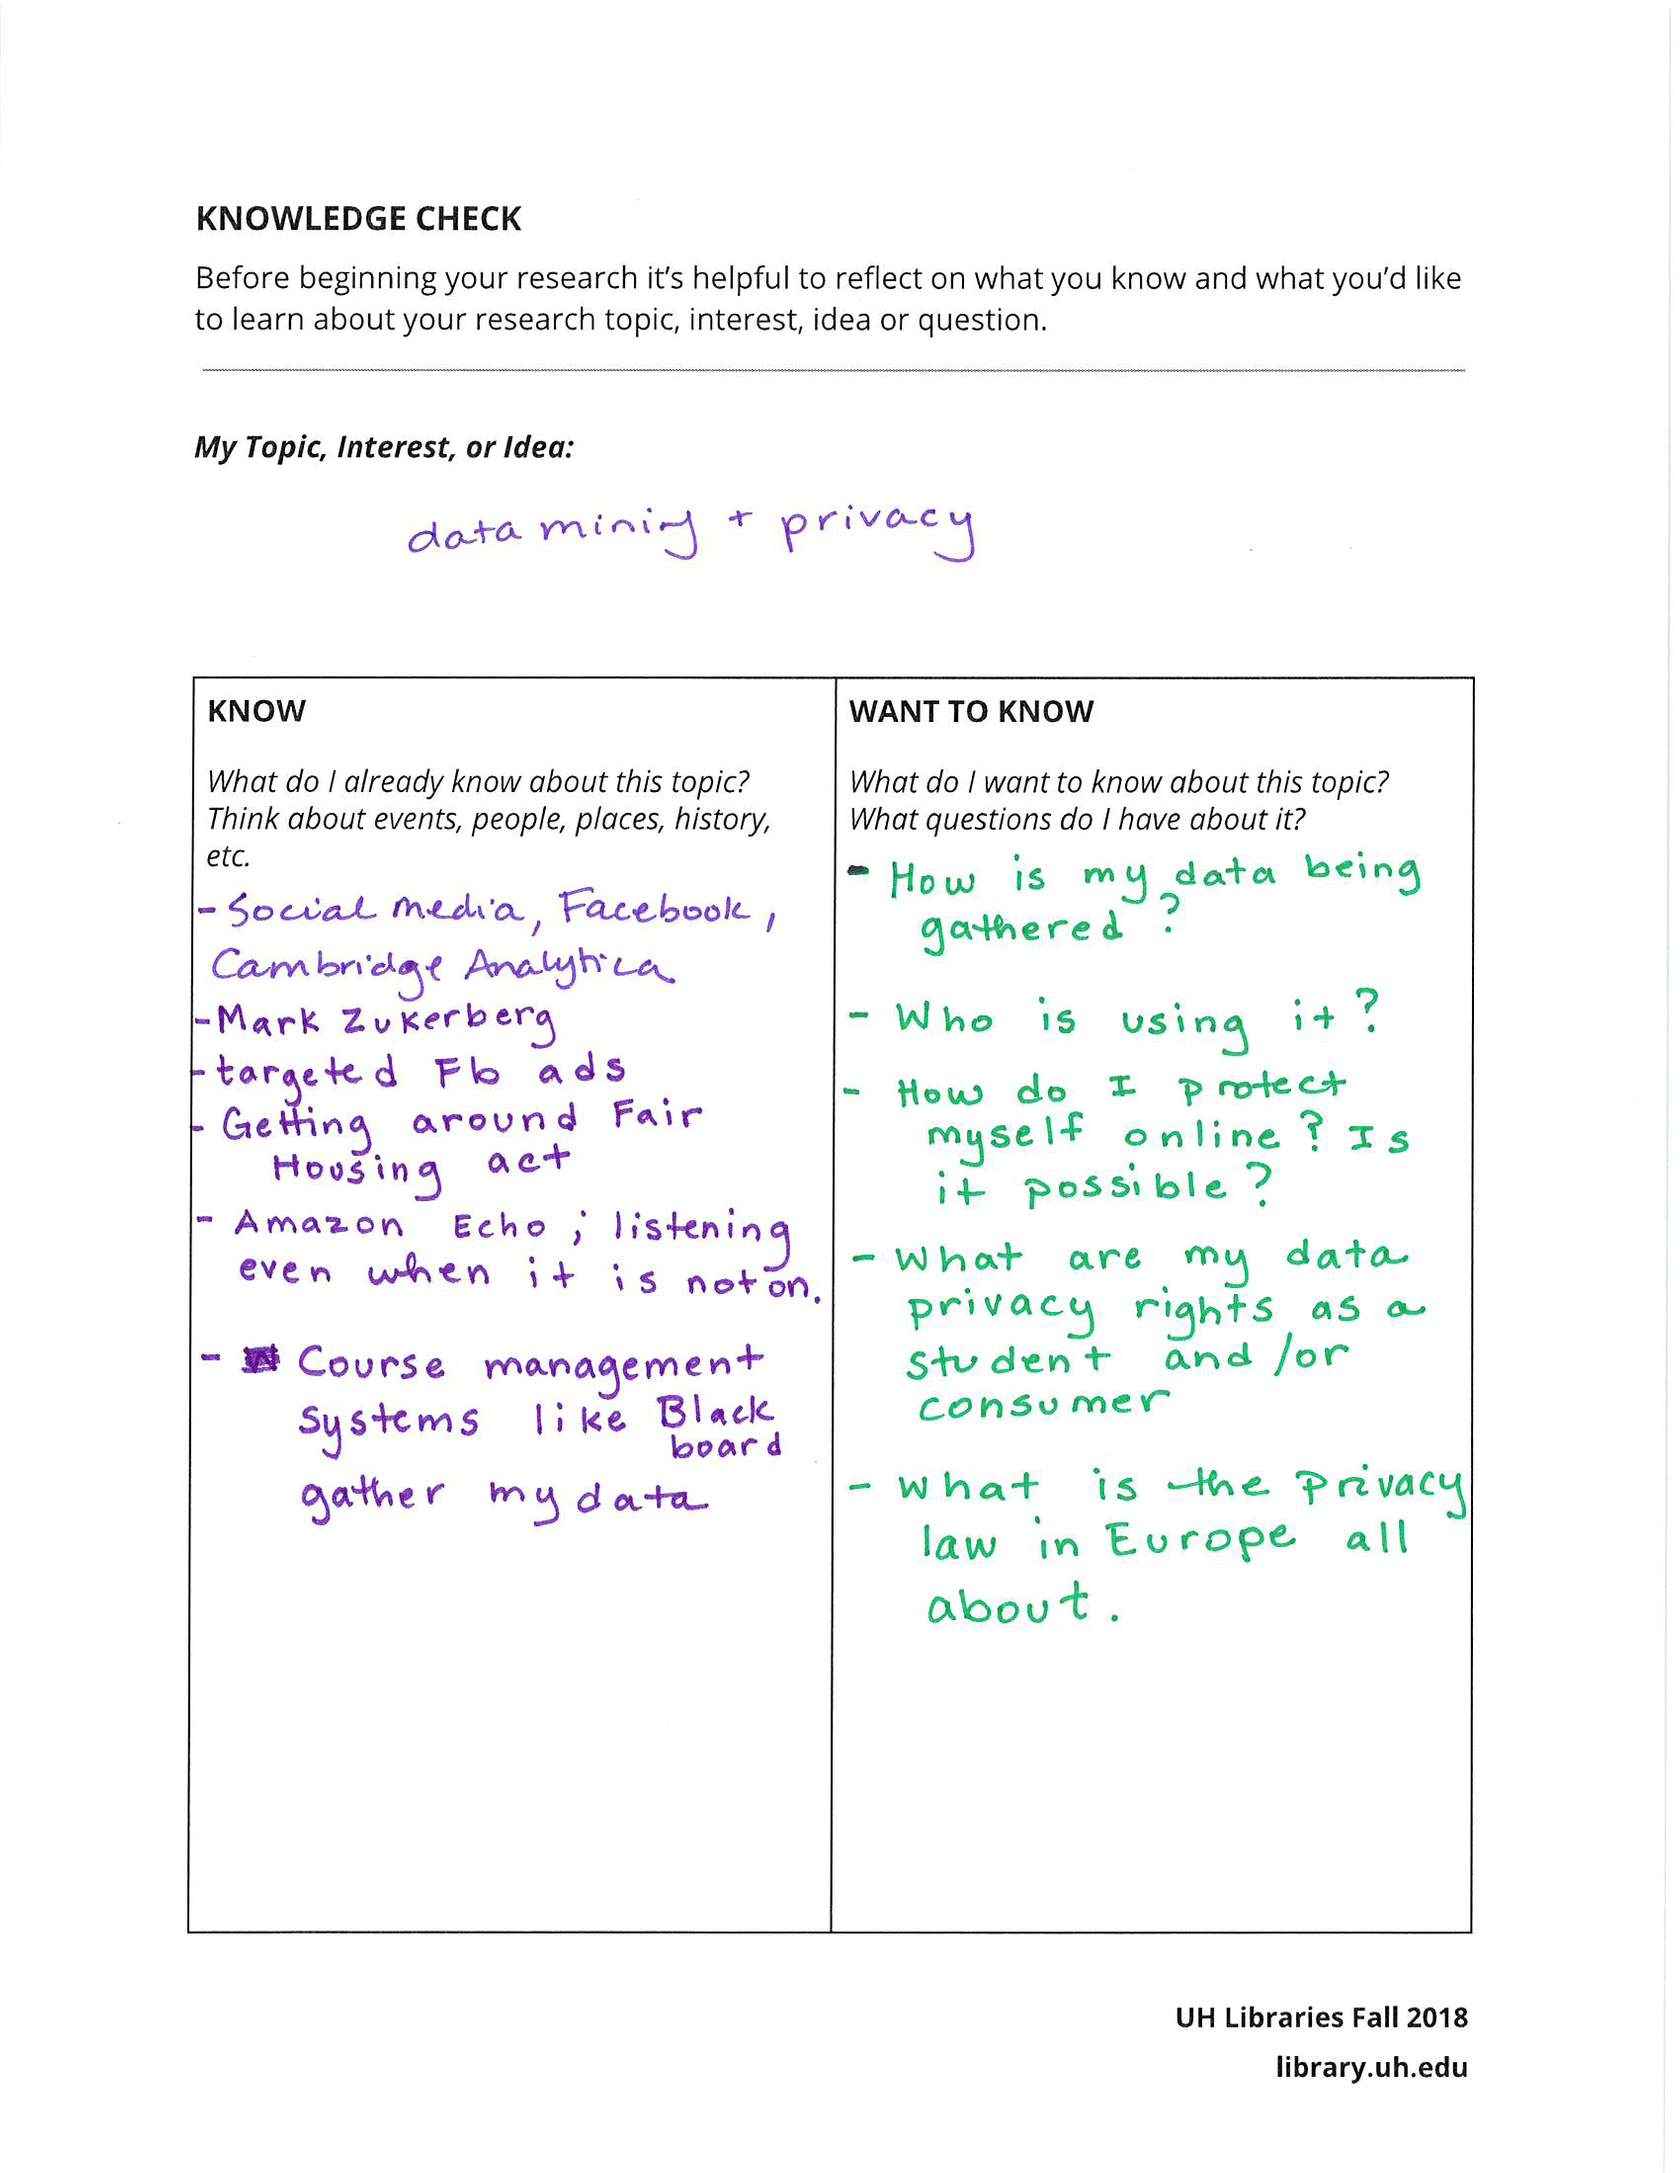 KNOWLEDGE CHECK
Before beginning your research it's helpful to reflect on what you know and what you'd like
to learn about your research topic, interest, idea or question.
My Topic, Interest, or Idea:
data mining + privacy
KNOW
What do I already know about this topic?
Think about events, people, places, history,
etc.
- Social media, Facebook,
Cambridge Analytica
- Mark Zukerberg
- targeted Fb ads
- Getting around Fair
Housing act
- Amazon Echo; listening
even when it is not on.
- Course management
systems like Black
board
gather my data
WANT TO KNOW
What do I want to know about this topic?
What questions do I have about it?
- How is my data being
gathered?
- Who is using it?
- How do I protect
myself online? Is
it possible?
- What are my data
privacy rights as a
student and/or
consumer
- What is the Privacy
law in Europe all
about.
UH Libraries Fall 2018
library.uh.edu